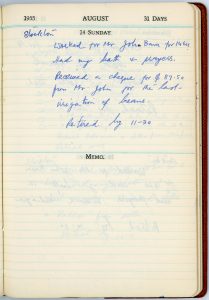 1955 AUGUST 31 DAYS
28 SUNDAY
Stockton
Worked for Mr John for
Had my bath & prayers.
Received a cheque for $ 87.50
from Mr John for the last
irrigation of beans.
Retired by 11-30
MEMO.